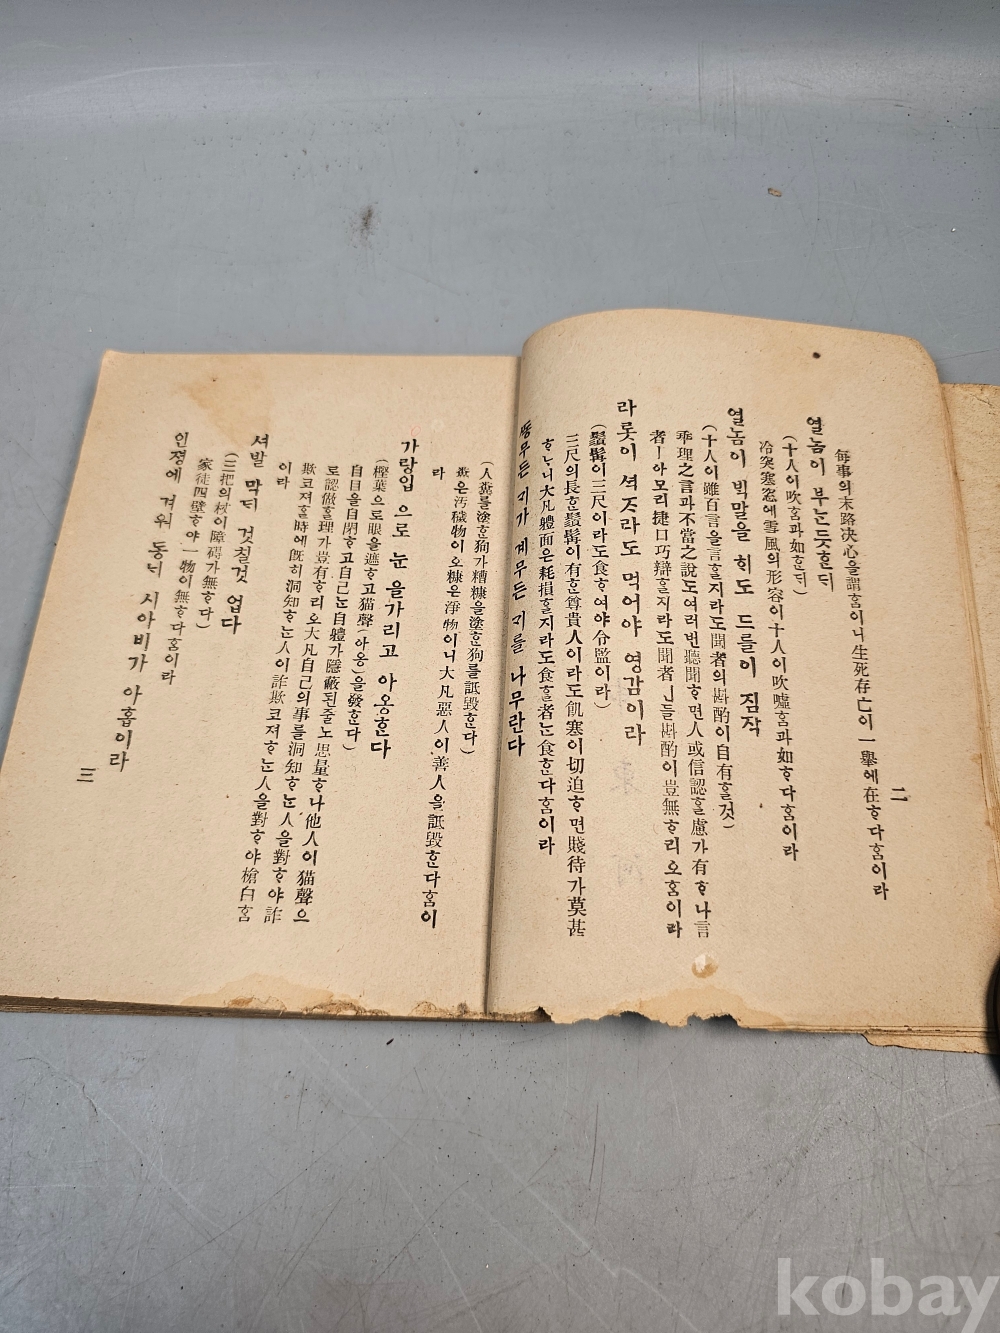 每事의末路決心을謂홈이니生死存亡이一擧에在ᄒᆞ다홈이라
열놈이 부눈듯ᄒᆞᆫ듸
(十人이吹홈과如ᄒᆞᆫ듸)
冷突寒窓에雪風의形容이十人이吹噓홈과如ᄒᆞ다홈이라
열놈이 ᄇᆡᆨ말을 ᄒᆡ도 드를이 짐작
(十人이雖百言을言ᄒᆞᆯ지라도聞者의斟酌이自有ᄒᆞᆯ것)
乖理之言과不當之說도여러번聽聞ᄒᆞ면人或信認ᄒᆞᆯ慮가有ᄒᆞ나言
者ㅣ아모리捷口巧辯ᄒᆞᆯ지라도聞者ㅣ들斟酌이豈無ᄒᆞ리오홈이라
라롯이 셕ᄌᆞ라도 먹어야 영감이라
(鬚髯이三尺이라도食ᄒᆞ여야令監이라)
三尺의長ᄒᆞᆫ鬚髯이有ᄒᆞᆫ尊貴人이라도飢寒이切迫ᄒᆞ면賤待가莫甚
ᄒᆞᄂᆞ니大凡軆面은耗損ᄒᆞᆯ지라도食ᄒᆞᆯ者는食ᄒᆞᆫ다홈이라
ᄯᅩᆼ무든 ᄀᆡ가 계무든 ᄀᆡ를 나무란다
二
(人糞를塗ᄒᆞᆫ狗가糟糠을塗ᄒᆞᆫ狗를詆毁ᄒᆞᆫ다)
糞은汚穢物이오糠은淨物이니大凡惡人이善人을詆毁ᄒᆞᆫ다홈이
라
가랑입 으로 눈 을가리고 아옹ᄒᆞᆫ다
(樫葉으로眼을遮ᄒᆞ고猫聲(아옹)을發ᄒᆞᆫ다)
自目을自閉ᄒᆞ고自己눈自軆가隱蔽된줄노思量ᄒᆞ나他人이猫聲으
로認做ᄒᆞᆯ理가豈有ᄒᆞ리오大凡自己의事를洞知ᄒᆞᄂᆞᆫ人을對ᄒᆞ야詐
欺코져ᄒᆞᆯ時에旣히洞知ᄒᆞᄂᆞᆫ人이詐欺코져ᄒᆞᄂᆞᆫ人을對ᄒᆞ야槍白홈
이라
셔발 막ᄃᆡ 것칠것 업다
(三把의杖이障碍가無ᄒᆞ다)
家徒四壁ᄒᆞ야一物이無ᄒᆞ다홈이라
인졍에 겨워 동ᄂᆡ 시아비가 아홉이라
三
kobay